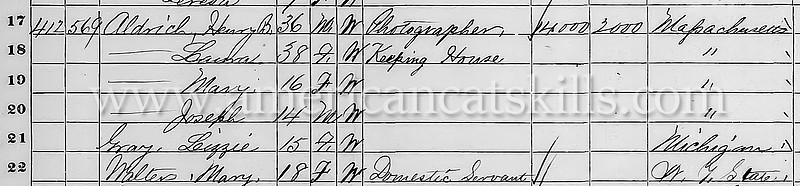 17 412 569 Aldrich, Henry B. 36 M W Photographer, 14000 2000 Massachusetts
18 — Laura 38 F W Keeping House "
19 — Mary, 16 F W "
20 — Joseph 14 M W "
21 Gray, Lizzie 15 F W Michigan
22 Walters, Mary, 18 F W Domestic Servant // N. Y. State
www.americancatskills.com